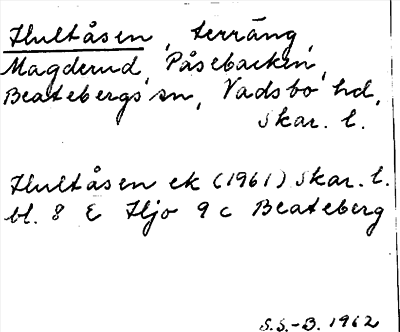 Hultåsen, terräng,
Magderud, Påsebacken,
Beatebergs sn, Vadsbo hd,
Skar. l.
Hultåsen ek (1961) Skar. l.
bl. 8 E Hjo 9 c Beateberg
S.S.-B. 1962